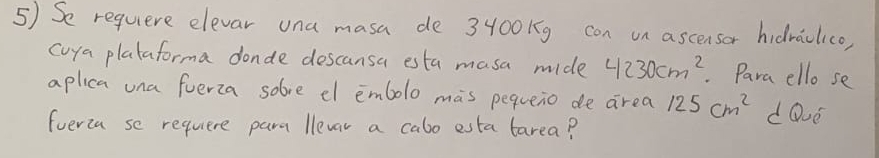 5) Se requiere elevar una masa de 3400Kg con un ascensor hidráulico,
cuya plataforma donde descansa esta masa mide 4230cm². Para ello se
aplica una fuerza sobre el émbolo más pequeño de área 125 cm² ¿Qué
fuerza se requiere para llevar a cabo esta tarea?